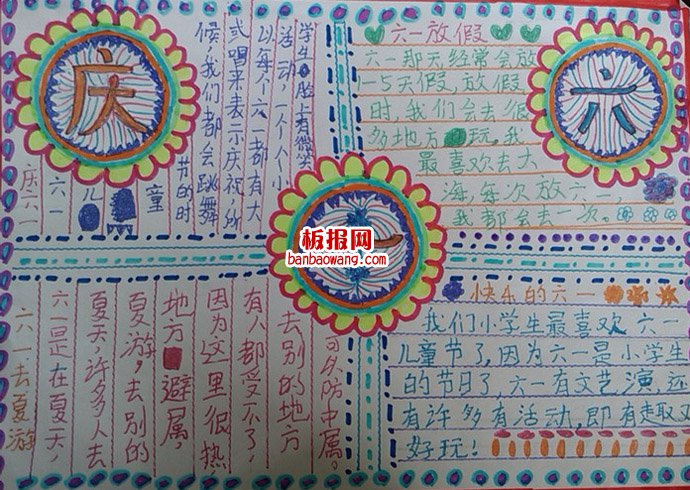 庆
六
一
庆六一
六一
儿
童
节的时
候,我们都会跳舞
或唱来表示庆祝,所
以每个六一都有大
活动,一个个小
学生脸上有微笑
六一放假
六一那天经常会放
一5天假,放假
时,我们会去很
多地方玩,我
最喜欢去大
海,每次放六一,
我都会去一次。
板报网
banbaowang.com
六一去夏游
六一是在夏天,
夏天,许多人去
夏游,去别的
地方避属,
因为这里很热
有人都受不了,
去别的地方
可以防中属。
快乐的六一
我们小学生最喜欢六一
儿童节了,因为六一是小学生
的节日了,六一有文艺演,还
有许多有活动,即有趣又
好玩!